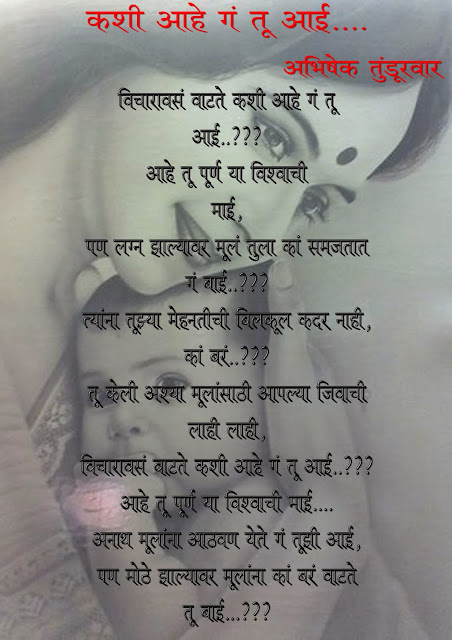 कशी आहे गं तू आई....
अभिषेक तुंडूरवार
विचारावसं वाटते कशी आहे गं तू
आई..???
आहे तू पूर्ण या विश्वाची
माई,
पण लग्न झाल्यावर मूलं तुला कां समजतात
गं बाई..???
त्यांना तूझ्या मेहनतीची बिलकूल कदर नाही,
कां बरं..???
तू केली अश्या मूलांसाठी आपल्या जिवाची
लाही लाही,
विचारावसं वाटते कशी आहे गं तू आई..???
आहे तू पूर्ण या विश्वाची माई....
अनाथ मूलांना आठवण येते गं तूझी आई,
पण मोठे झाल्यावर मूलांना कां बरं वाटते
तू बाई...???